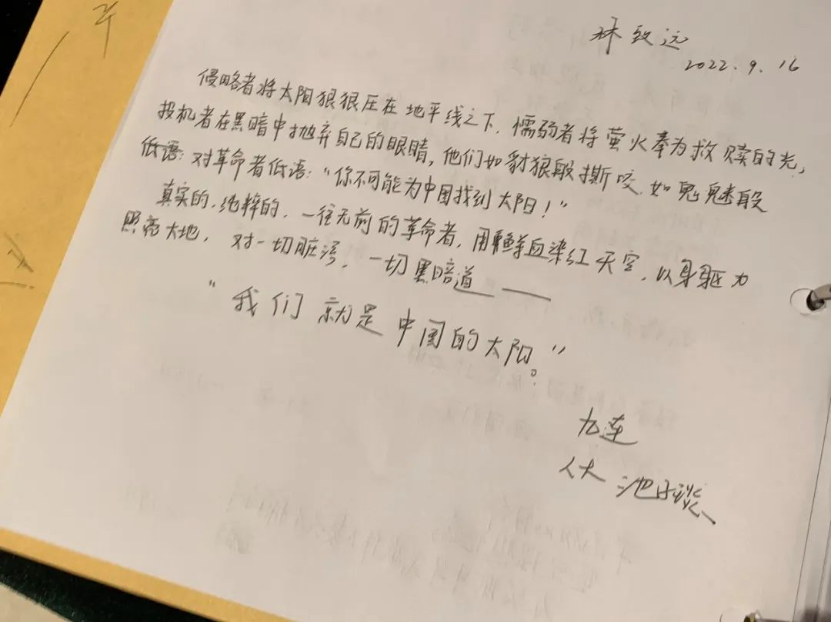 林致远
2022.9.16
侵略者将太阳狠狠压在地平线之下,懦弱者将萤火奉为救赎的光,
投机者在黑暗中抛弃自己的眼睛,他们如豺狼般撕咬,如鬼魅般
低语:对革命者低语:“你不可能为中国找到太阳!”
真实的,纯粹的,一往无前的革命者,用鲜血染红天空,以身躯为
照亮大地,对一切脏污,一切黑暗道——
“我们就是中国的太阳。”
九连
人大 池